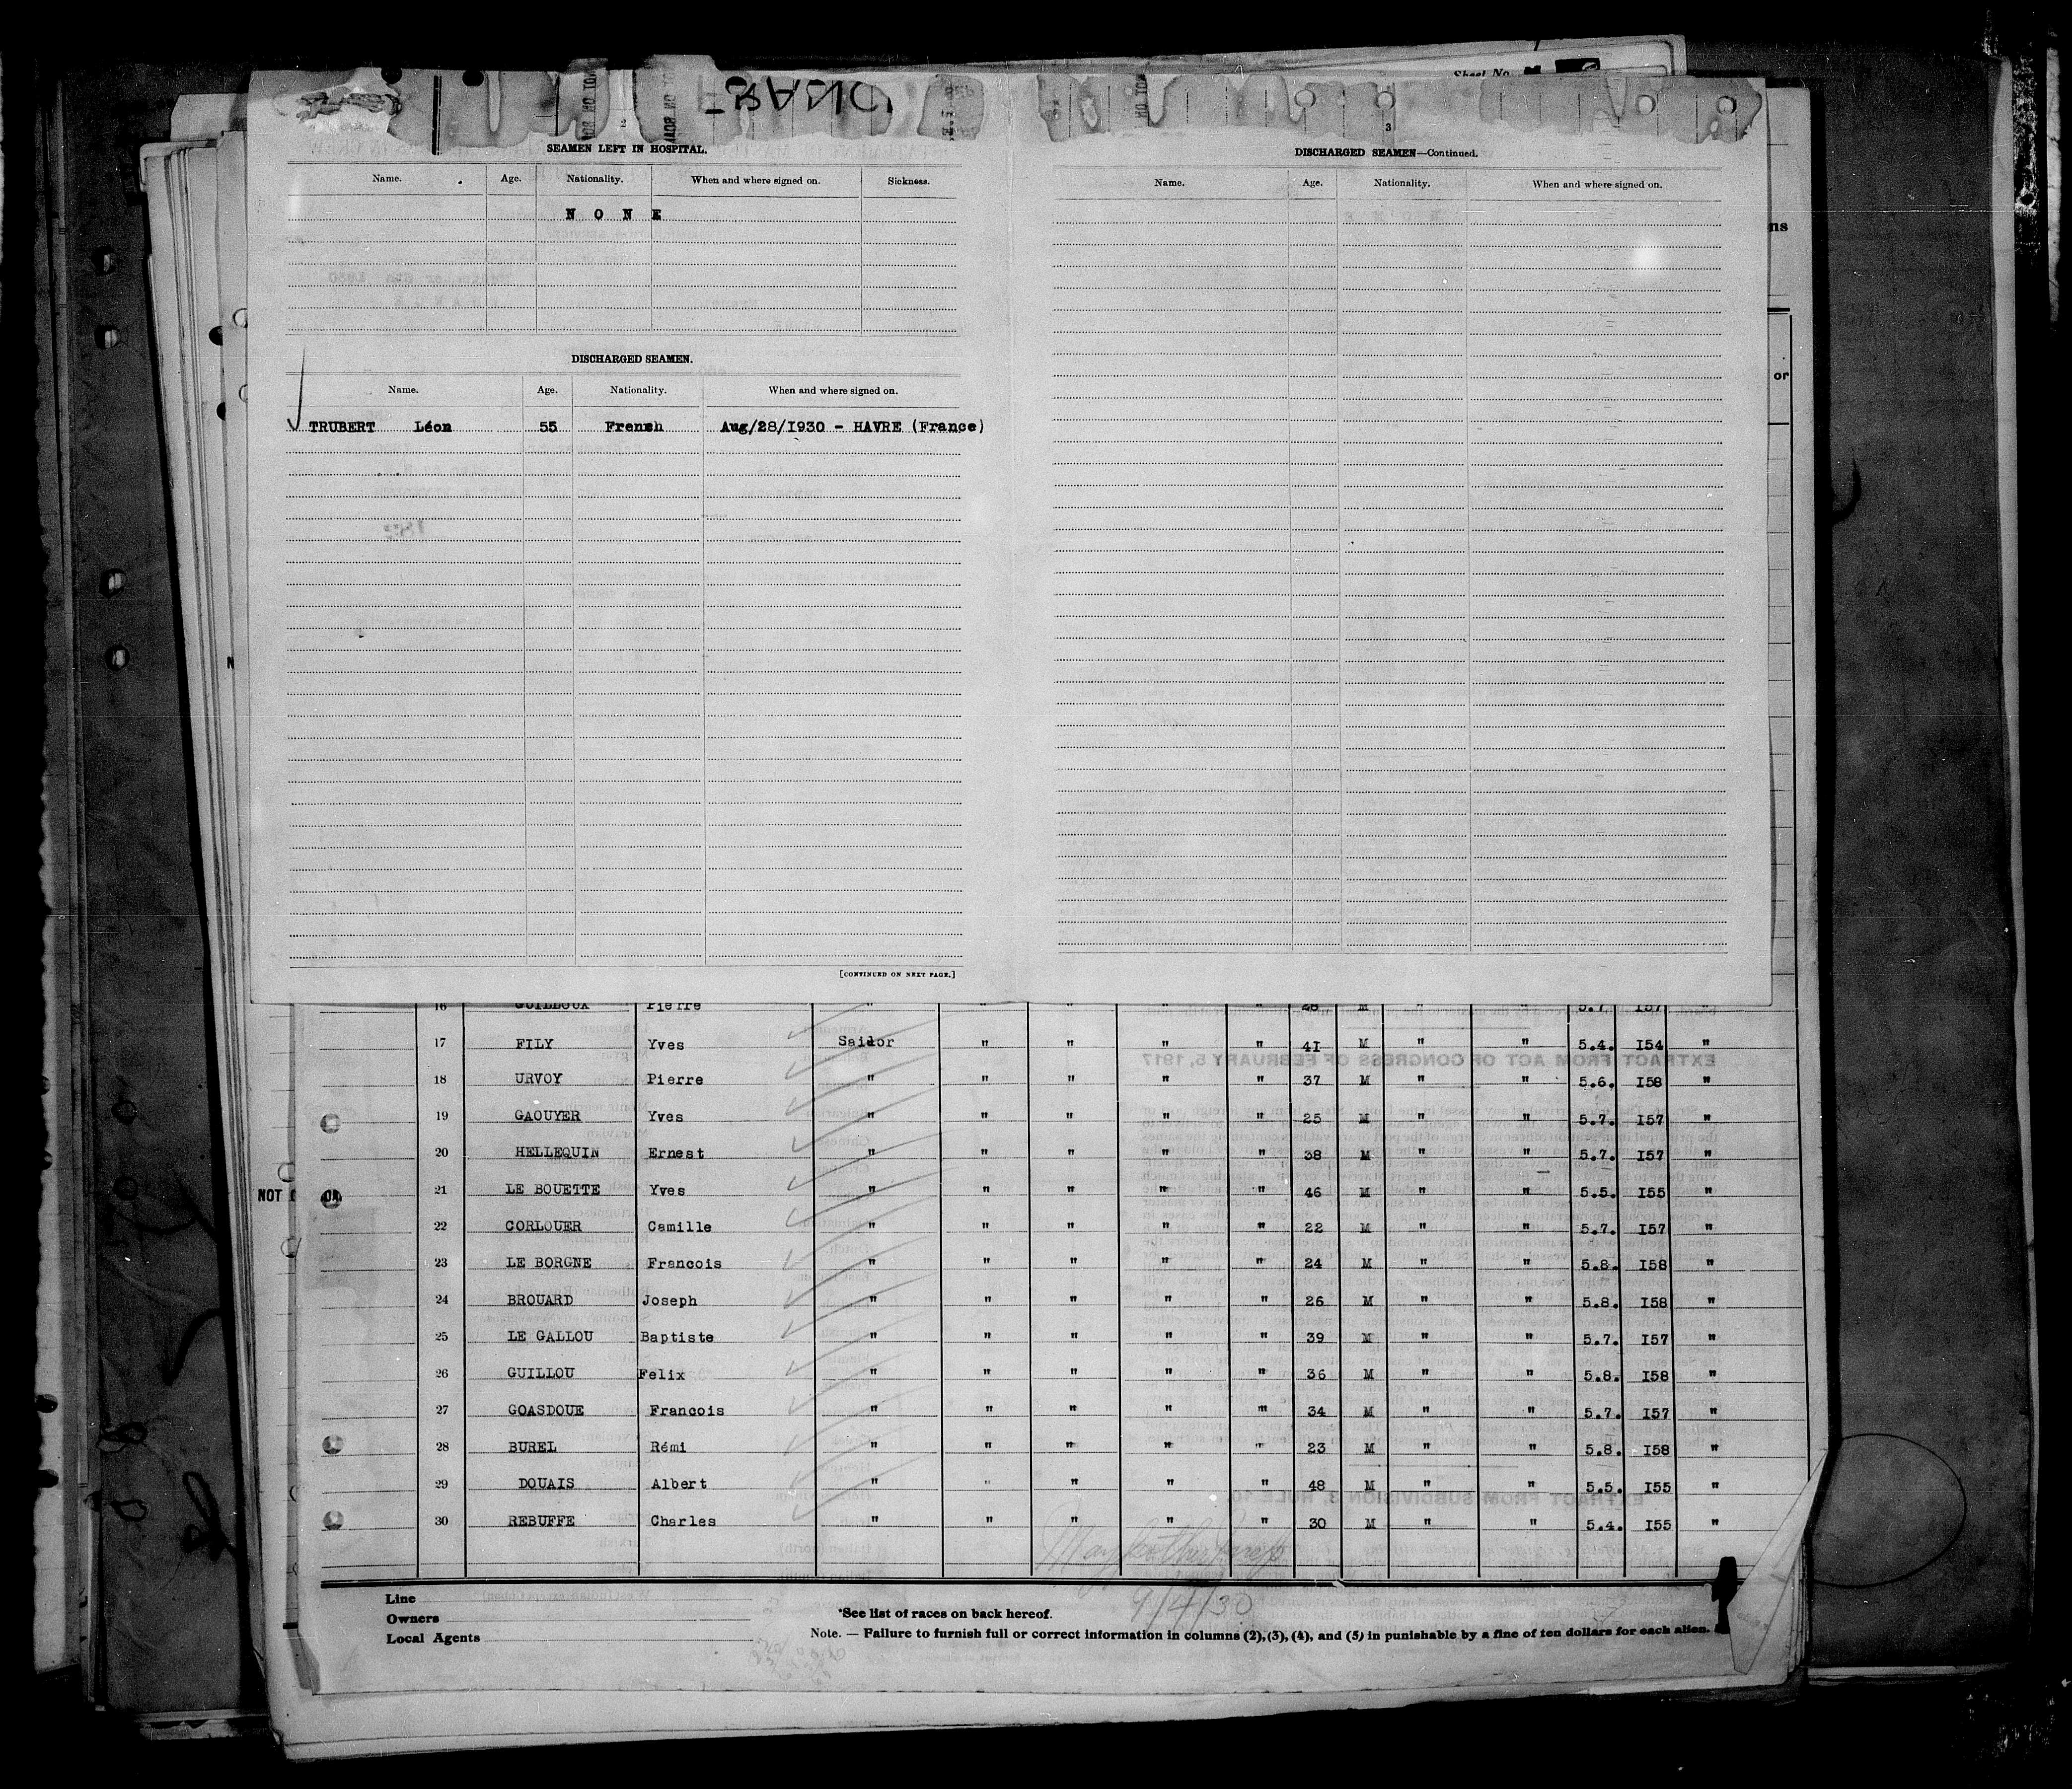 Sheet No.
2
3
SEAMEN LEFT IN HOSPITAL.
Name. Age. Nationality. When and where signed on. Sickness.
N O N E
DISCHARGED SEAMEN.
Name. Age. Nationality. When and where signed on.
TRUBERT Léon 55 French Aug/28/I930 - HAVRE (France)
[CONTINUED ON NEXT PAGE.]
DISCHARGED SEAMEN—Continued.
Name. Age. Nationality. When and where signed on.
ns
or
N
NOT
16 GUILLOUX Pierre " " " " " 28 M " " 5.7. I57 "
17 FILY Yves Sailor " " " " 4I M " " 5.4. I54 "
18 URVOY Pierre " " " " " 37 M " " 5.6. I58 "
19 GAOUYER Yves " " " " " 25 M " " 5.7. I57 "
20 HELLEQUIN Ernest " " " " " 38 M " " 5.7. I57 "
21 LE BOUETTE Yves " " " " " 46 M " " 5.5. I55 "
22 CORLOUER Camille " " " " " 22 M " " 5.7. I57 "
23 LE BORGNE Francois " " " " " 24 M " " 5.8. I58 "
24 BROUARD Joseph " " " " " 26 M " " 5.8. I58 "
25 LE GALLOU Baptiste " " " " " 39 M " " 5.7. I57 "
26 GUILLOU Felix " " " " " 36 M " " 5.8. I58 "
27 GOASDOUE Francois " " " " " 34 M " " 5.7. I57 "
28 BUREL Rémi " " " " " 23 M " " 5.8. I58 "
29 DOUAIS Albert " " " " " 48 M " " 5.5. I55 "
30 REBUFFE Charles " " " " " 30 M " " 5.4. I55 "
9/4/30
Line
Owners
Local Agents
*See list of races on back hereof.
Note. — Failure to furnish full or correct information in columns (2), (3), (4), and (5) in punishable by a fine of ten dollars for each alien.